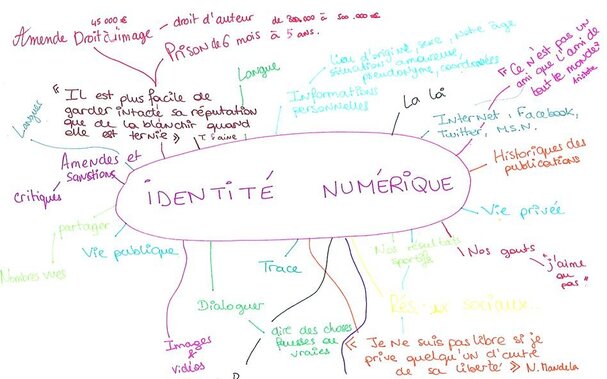 45 000 €
Amende Droit à l'image
droit d'auteur de 300.000 à 500.000 €
Prison de 6 mois à 5 ans.
« Il est plus facile de
garder intacte sa réputation
que de la blanchir quand
elle est ternie »
Longue
Longues
Informations
personnelles
Lieu d'origine, sexe, notre âge
situation amoureuse,
pseudonyme, coordonnées
La loi
« Ce n'est pas un
ami que l'ami de
tout le monde »
Internet, Facebook,
Twitter, M.S.N.
Historiques des
publications
Amendes et
sanctions
critiques
IDENTITÉ NUMÉRIQUE
partager
Vie publique
Nombres vues
Vie privée
Nos résultats
sportifs
Nos gouts
"j'aime
ou pas"
Trace
Dialoguer
dire des choses
fausses ou
vraies
Images
&
vidéos
Réseaux sociaux...
« Je Ne suis pas libre si je
prive quelqu'un d'autre
de sa liberté » N. Mandela